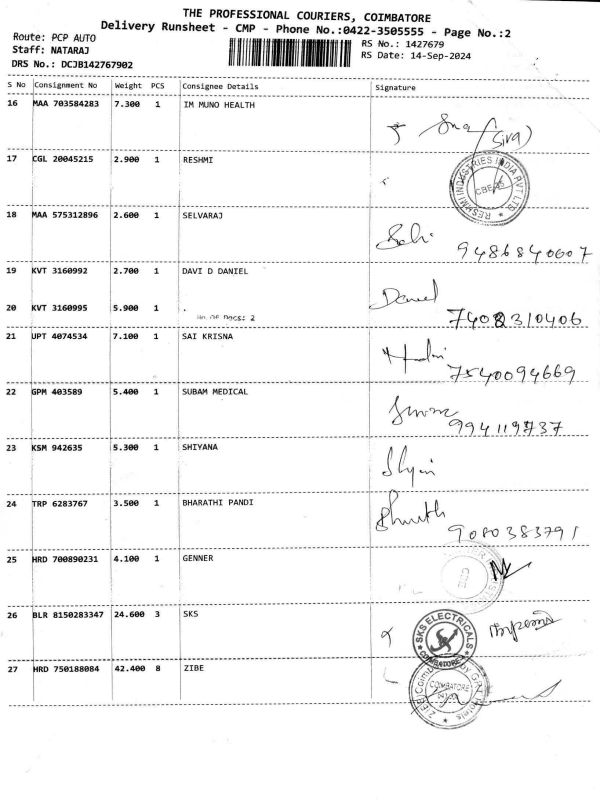 THE PROFESSIONAL COURIERS, COIMBATORE
Delivery Runsheet - CMP - Phone No.:0422-3505555 - Page No.:2
Route: PCP AUTO
Staff: NATARAJ
DRS No.: DCJB142767902
RS No.: 1427679
RS Date: 14-Sep-2024
S No Consignment No Weight PCS Consignee Details Signature
16 MAA 703584283 7.300 1 IM MUNO HEALTH
(Siva)
17 CGL 20045215 2.900 1 RESHMI
RESHMI INDUSTRIES INDIA PVT LTD.
18 MAA 575312896 2.600 1 SELVARAJ
9486840607
19 KVT 3160992 2.700 1 DAVI D DANIEL
Daniel
20 KVT 3160995 5.900 1 .
No. Of Pkgs: 2
7402310406
21 UPT 4074534 7.100 1 SAI KRISNA
7540094669
22 GPM 403589 5.400 1 SUBAM MEDICAL
994119737
23 KSM 942635 5.300 1 SHIYANA
24 TRP 6283767 3.500 1 BHARATHI PANDI
9080383791
25 HRD 700890231 4.100 1 GENNER
26 BLR 8150283347 24.600 3 SKS
SKS ELECTRICALS
COIMBATORE
27 HRD 750188084 42.400 8 ZIBE
COIMBATORE